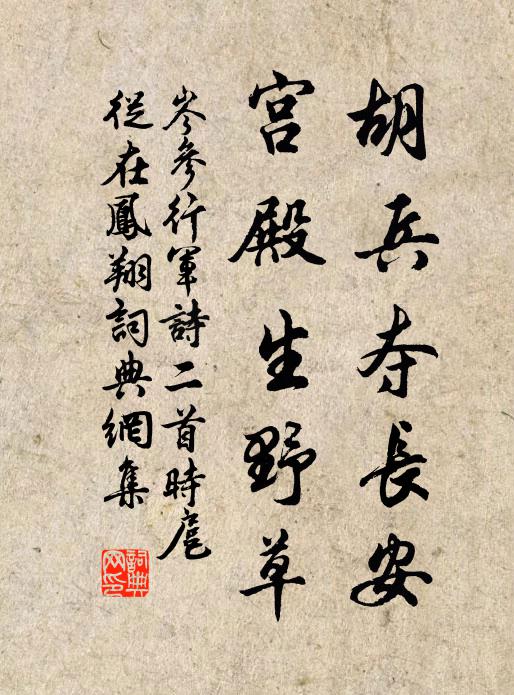 胡兵夺長安
宫殿生野草
岑參行軍詩二首時扈
從在鳳翔詞典網集
詞典网印